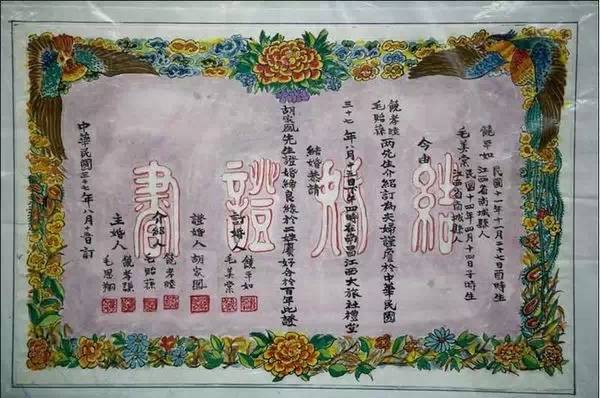 結婚證書
民國十一年十一月二十七日酉時生
饒平如江西省南城縣人
毛美棠民國十四年四月十四日子時生
江西省南城縣人
今由
饒孝睦
毛貽蓀
兩先生介紹訂為夫婦謹詹於中華民國
三十七年八月五日 四時在南昌江西大旅社禮堂
結婚恭請
胡家鳳先生證婚締良緣於二姓慶好合於百年此證
訂婚人
饒平如
毛美棠
證婚人 胡家鳳
介紹人
饒孝睦
毛貽蓀
主婚人
饒孝謙
毛思翔
中華民國三十七年八月 訂